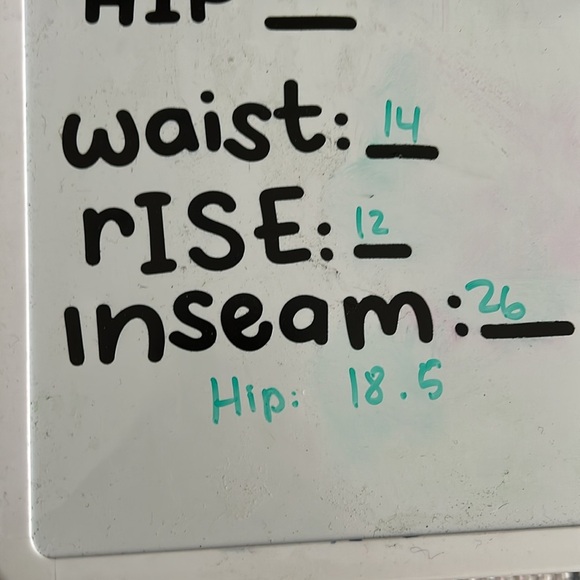 HIP __
waist: 14
rISE: 12
Inseam: 26
Hip: 18.5